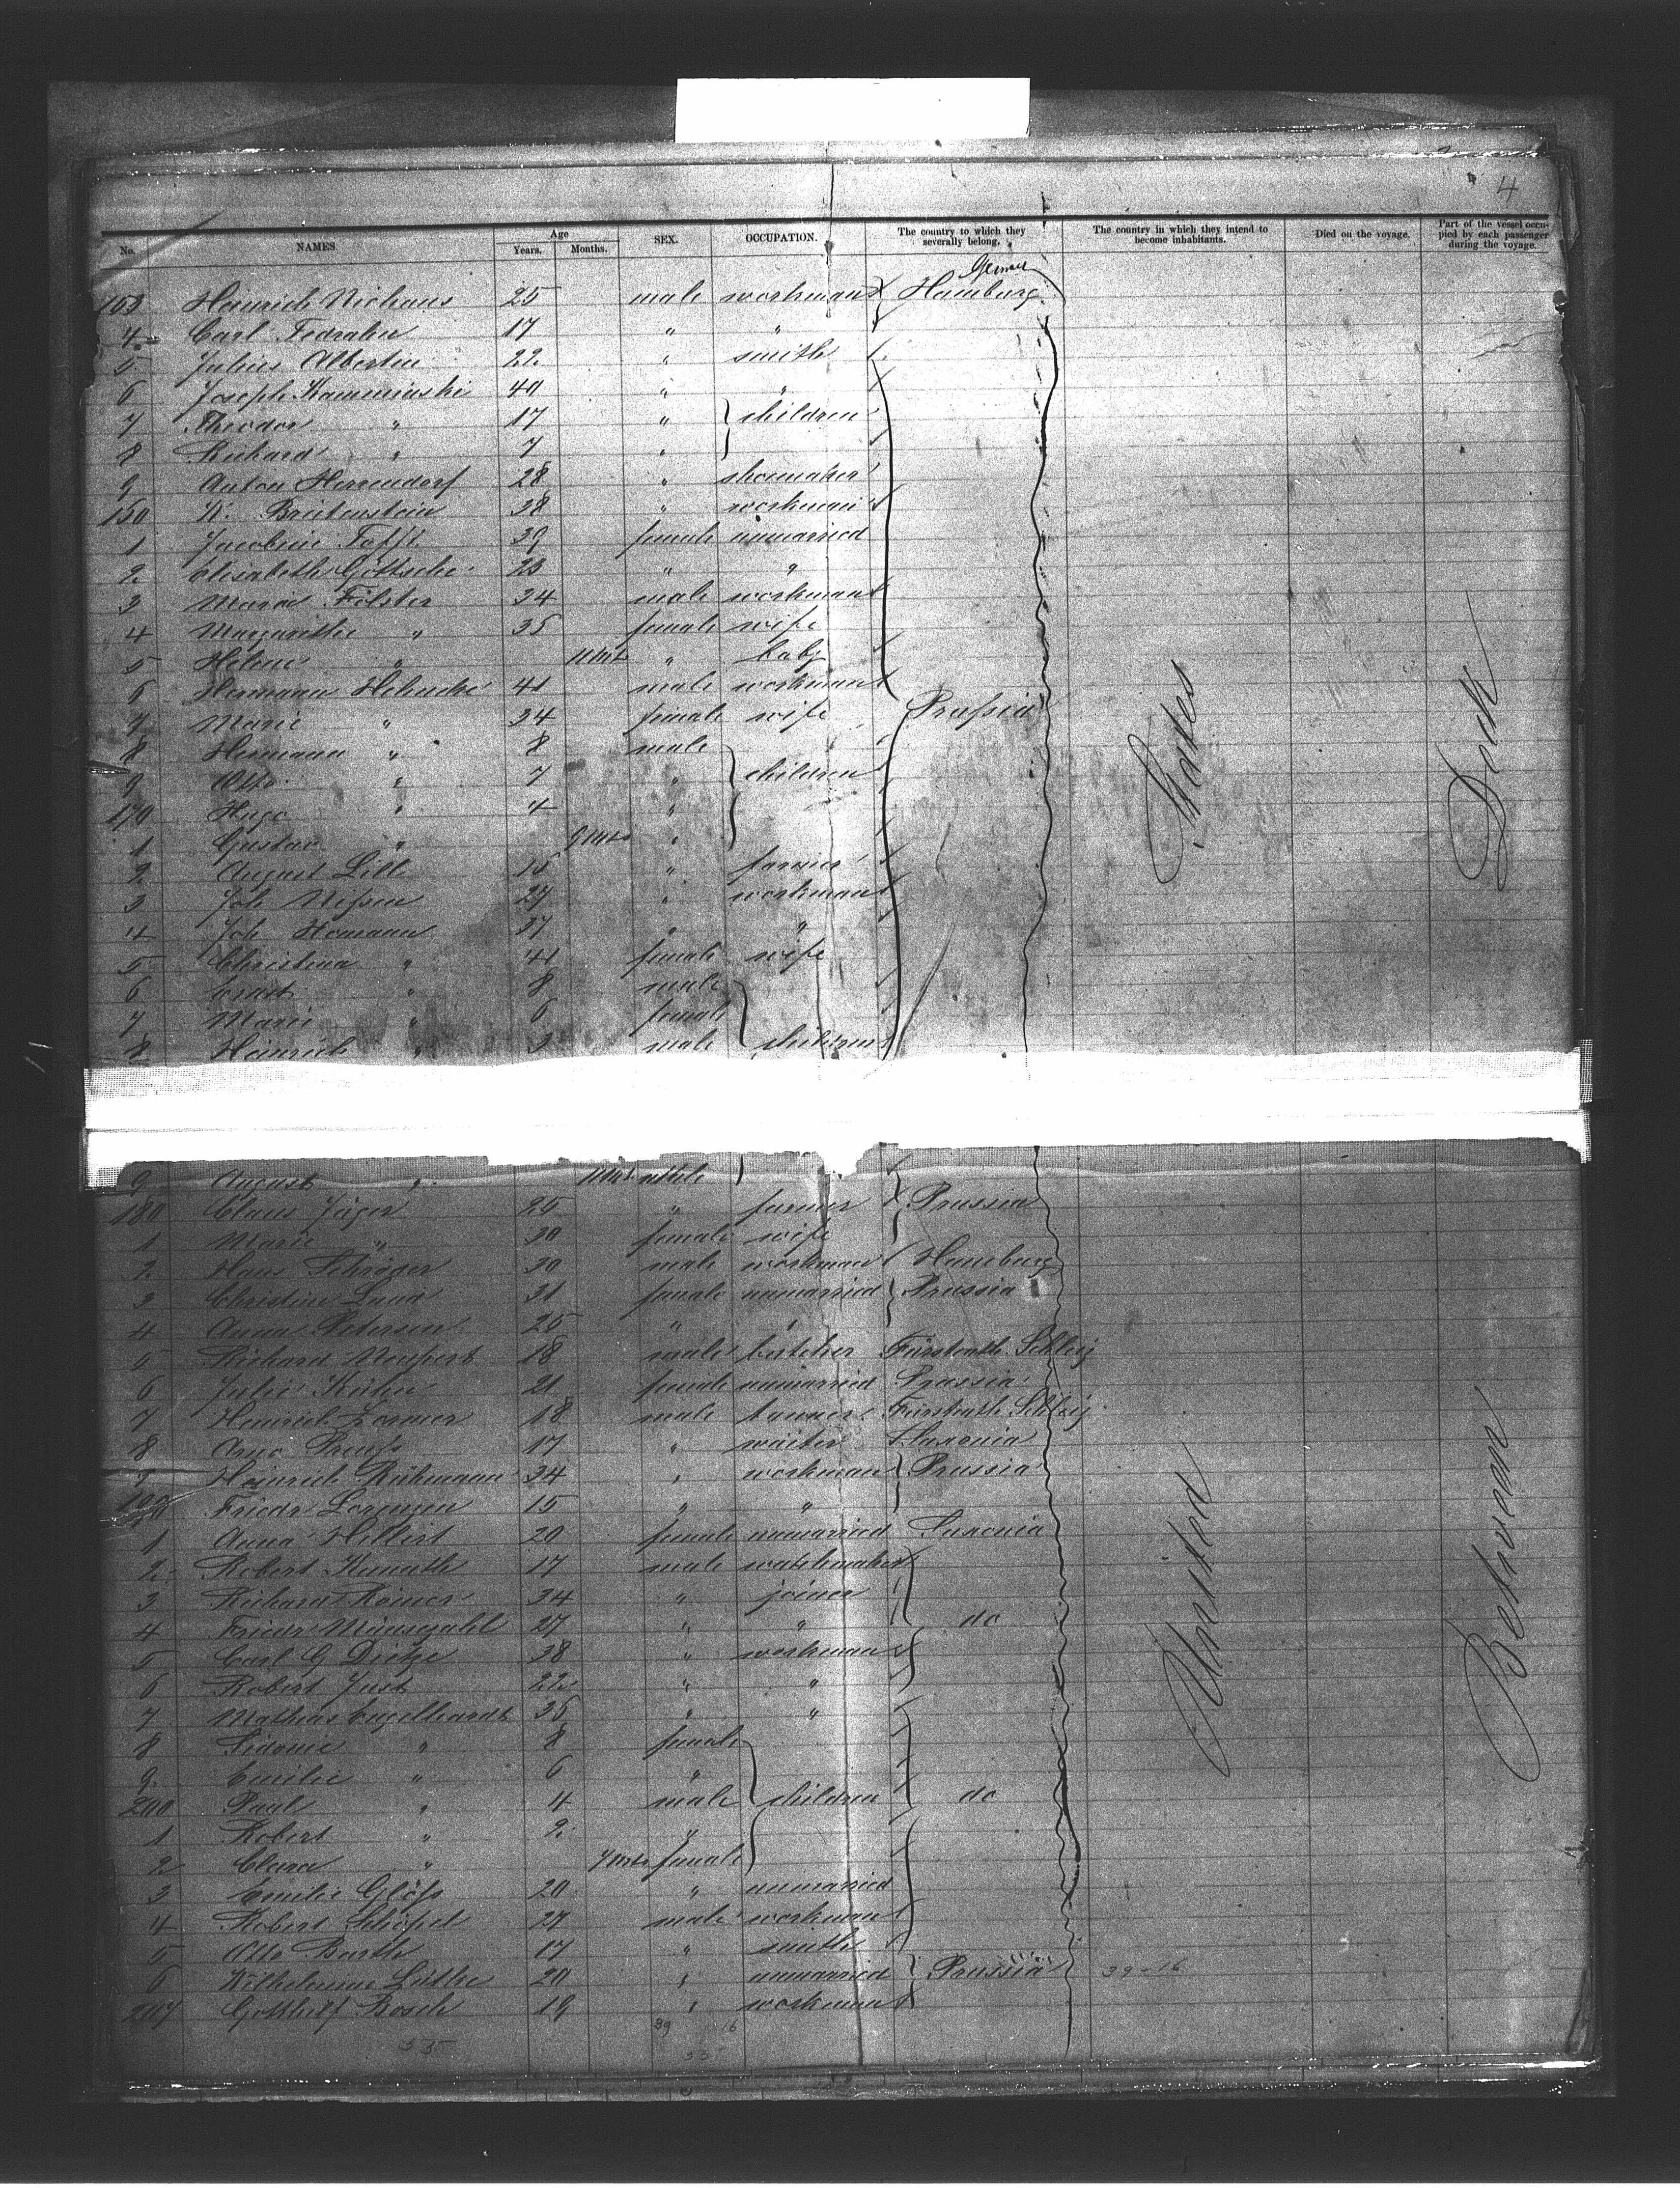 4
No. NAMES. Age Years. Months. SEX. OCCUPATION. The country to which they severally belong. The country in which they intend to become inhabitants. Died on the voyage. Part of the vessel occupied by each passenger during the voyage.
German
153 Heinrich Niehaus 25 male workman Hamburg
4 Carl 17 " "
5 Julius Albertin 22 " smith
6 Joseph Kamminski 40 " "
7 Theodor " 17 " children
8 Richard " 7 "
9 Anton Herrendorf 28 " shoemaker
150 K. Breitenstein 38 " workman
1 Jacobine 39 female unmarried
2 Elisabeth Göttsche 23 " "
3 Fölster 34 male workman
4 Margarethe " 35 female wife
5 Helene " 11 Mts " baby
6 Hermann 41 male workman
7 Marie " 34 female wife Prussia
8 Hermann " 8 male
9 Otto " 7 " children
170 Hugo " 4 "
1 Gustav " 9 Mts "
2 August Lill 15 " farmer
3 Joh Nissen 27 " workman
4 Joh Homann 37 " "
5 Christina " 41 female wife
6 Ernst " 8 male
7 Marie " 6 female
8 Heinrich " 3 male children
9 August " 11 Mts male
180 Claus Jäger 25 " farmer Prussia
1 Marie " 30 female wife
2 Hans Schröder 30 male workman Hamburg
3 Christine Lund 31 female unmarried Prussia
4 Anna Petersen 25 " "
5 Richard Neupert 18 male butcher Fürstenth. Schleiz
6 Julie Kühn 21 female unmarried Prussia
7 Heinrich 18 male tanner Fürstenth. Schleiz
8 Arno Preuß 17 " waiter Saxonia
9 Heinrich Rühmann 34 " workman Prussia
190 Friedr Lorenzen 15 " "
1 Anna Hillert 20 female unmarried Saxonia
2 Robert Kunath 17 male watchmaker
3 Richard Römer 34 " joiner
4 Friedr Mäusezahl 27 " " do
5 Carl G Dietze 38 " workman
6 Robert Just 22 " "
7 Mathias Engelhardt 36 " "
8 Sidonie " 8 female
9 Emilie " 6 "
200 Paul " 4 male children do
1 Robert " 2 "
2 Clara " 7 Mts female
3 Emilie Gläß 20 " unmarried
4 Robert Schöpel 27 male workman
5 Otto Barth 17 " smith
6 Wilhelmine Lüthe 20 " unmarried Prussia 39-16
207 Gotthilf Bosch 19 " workman
39 16
55 55
United States
Between Deck